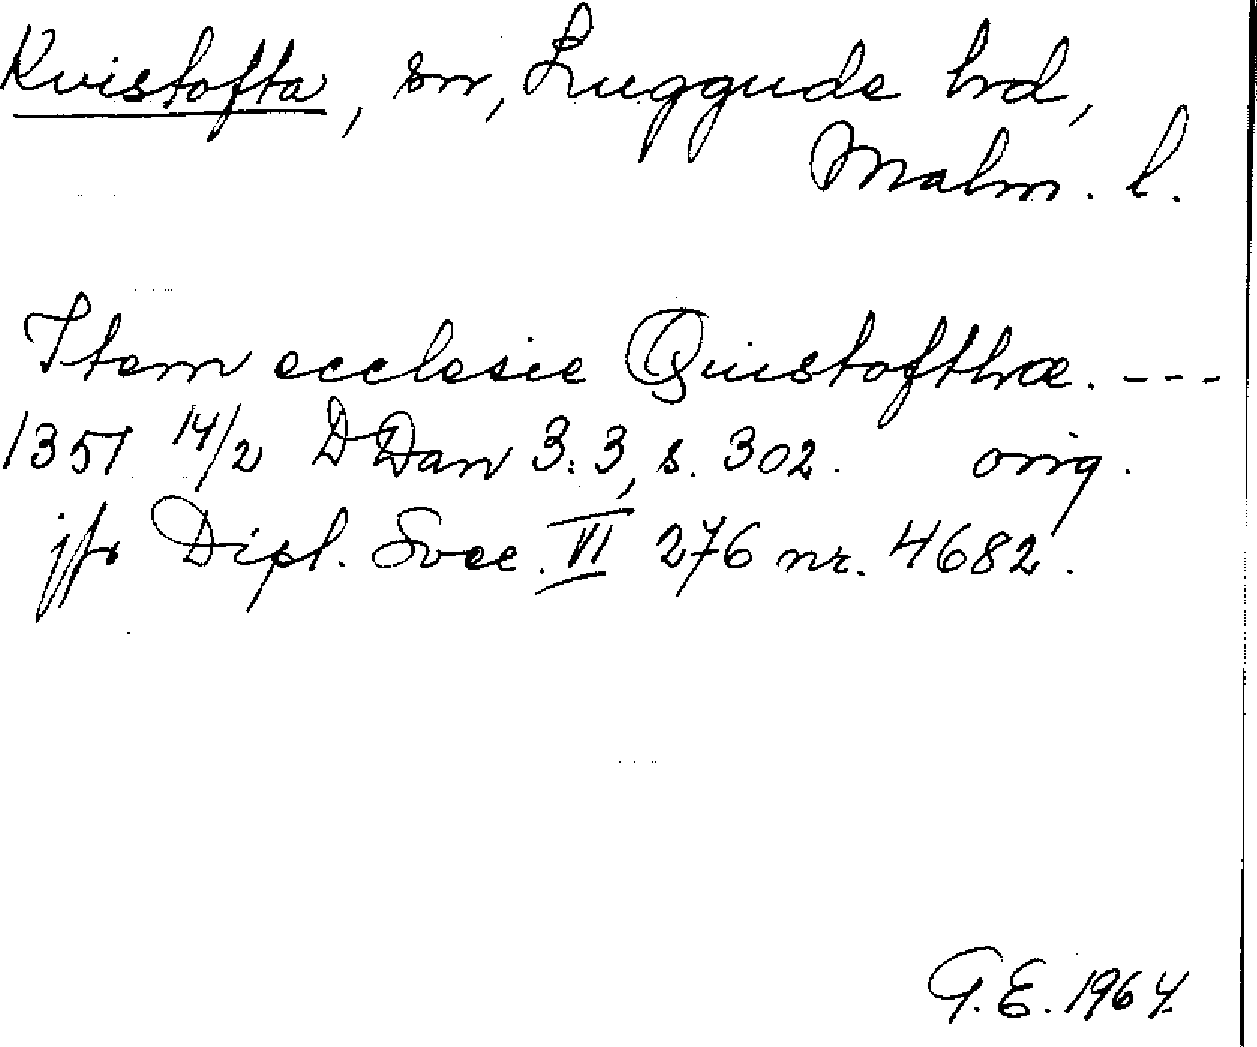 Kvistofta, sn, Luggude hrd,
Malm. l.
Item ecclesie Quistofthæ. ---
1351 14/2 DDan 3:3, s. 302. orig.
jfr Dipl. Svec. VI 276 nr. 4682.
G.E. 1964.